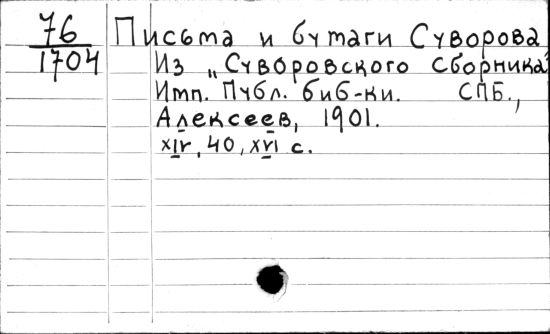 76 Письма и бумаги Суворова
1704 Из „Суворовского сборника"
Имп. Публ. биб-ки. СПБ.,
Алексеев, 1901.
XIV, 40, XVI с.